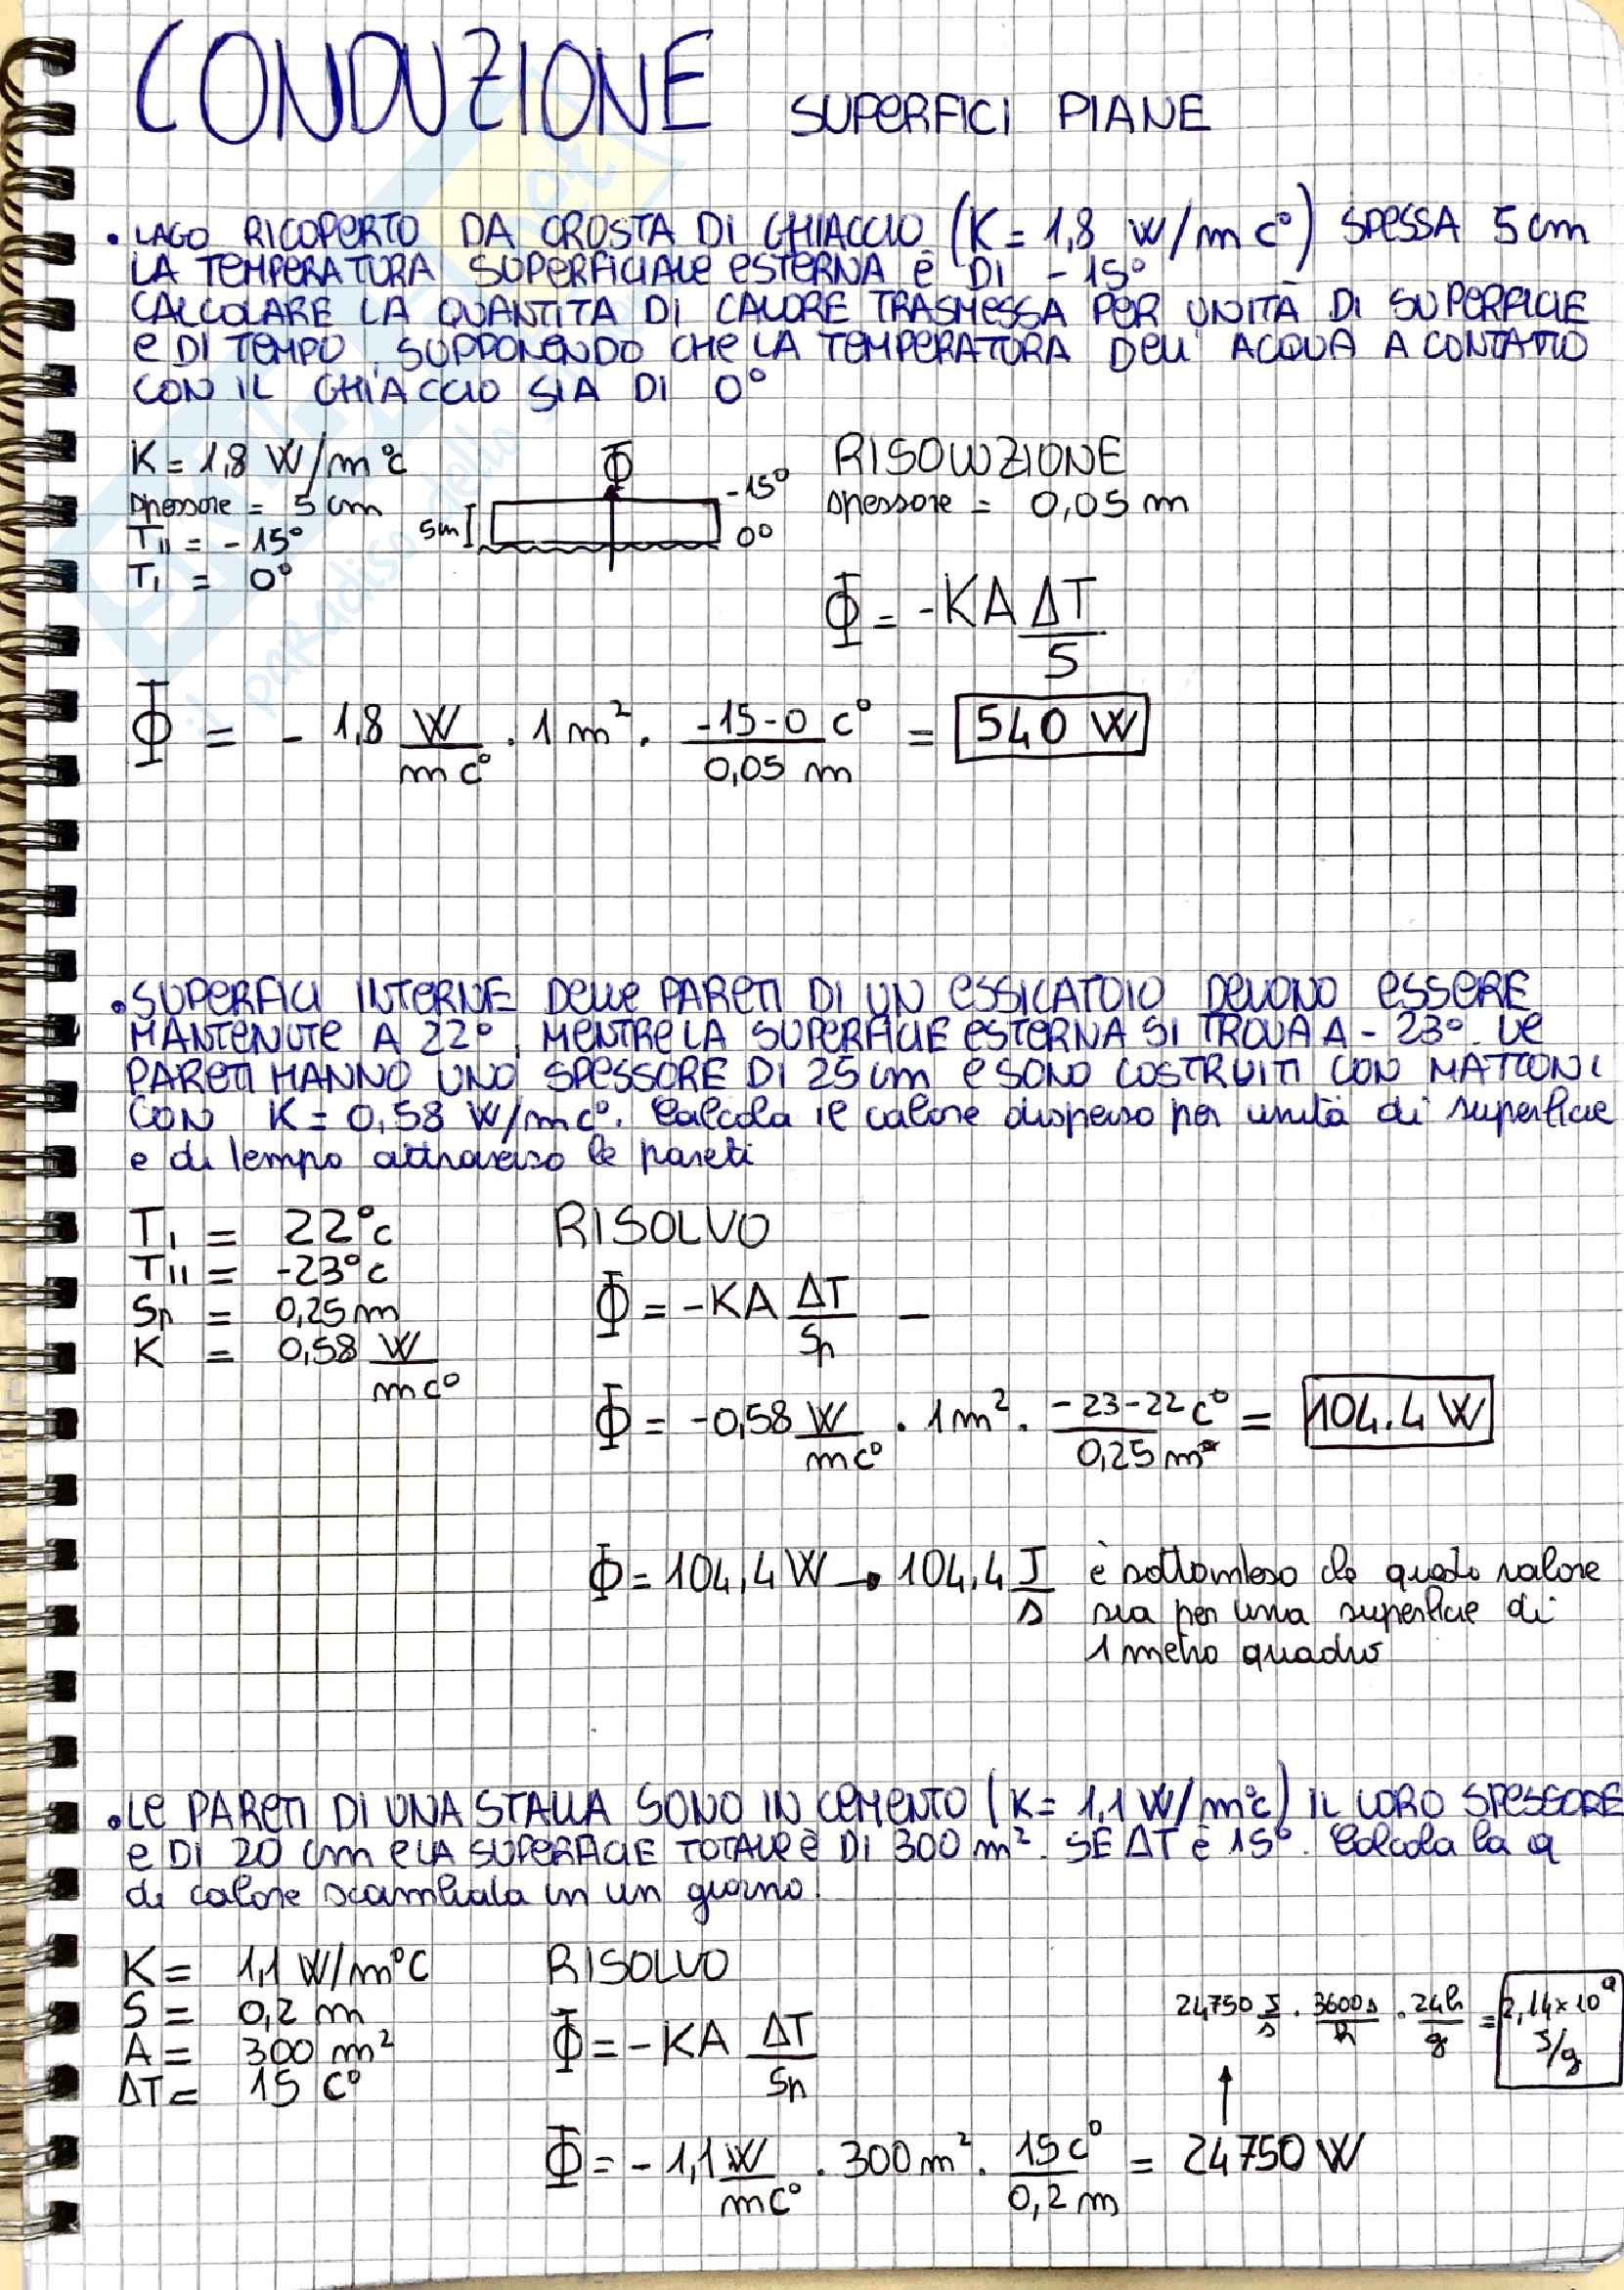 CONDUZIONE SUPERFICI PIANE
• LAGO RICOPERTO DA CROSTA DI GHIACCIO (K = 1,8 W/m c°) SPESSA 5 cm
LA TEMPERATURA SUPERFICIALE ESTERNA È DI -15°
CALCOLARE LA QUANTITÀ DI CALORE TRASMESSA PER UNITÀ DI SUPERFICIE
e DI TEMPO, SUPPONENDO CHE LA TEMPERATURA DELL' ACQUA A CONTATTO
CON IL GHIACCIO SIA DI 0°
K = 1,8 W/m°c
spessore = 5 cm
T₁₁ = -15°
T₁ = 0°
Φ
5cm
-15°
0°
RISOLUZIONE
spessore = 0,05 m
Φ = -KA ΔT/S
Φ = - 1,8 W/mc° · 1 m² · -15-0 c°/0,05 m = 540 W
• SUPERFICI INTERNE DELLE PARETI DI UN ESSICATOIO DEVONO ESSERE
MANTENUTE A 22°, MENTRE LA SUPERFICIE ESTERNA SI TROVA A - 23°. LE
PARETI HANNO UNO SPESSORE DI 25 cm e SONO COSTRUITI CON MATTONI
CON K = 0,58 W/mc°. Calcola il calore disperso per unità di superficie
e di tempo attraverso le pareti
T₁ = 22°c
T₁₁ = -23°c
Sp = 0,25 m
K = 0,58 W/mc°
RISOLVO
Φ = -KA ΔT/Sp –
Φ = -0,58 W/mc° · 1m² · -23-22 c°/0,25 m = 104.4 W
Φ = 104,4 W → 104,4 J/s è sottointeso che questo valore
sia per una superficie di
1 metro quadro
• LE PARETI DI UNA STALLA SONO IN CEMENTO (K = 1,1 W/m°c) IL LORO SPESSORE
e DI 20 cm e LA SUPERFICIE TOTALE è DI 300 m². SE ΔT è 15°. Calcola la q
di calore scambiata in un giorno.
K = 1,1 W/m°C
S = 0,2 m
A = 300 m²
ΔT = 15 C°
RISOLVO
Φ = -KA ΔT/Sp
24750 J/s · 3600s/h · 24h/g = 2,14×10⁹ J/g
Φ = - 1,1 W/mc° · 300 m² · 15 c°/0,2 m = 24750 W